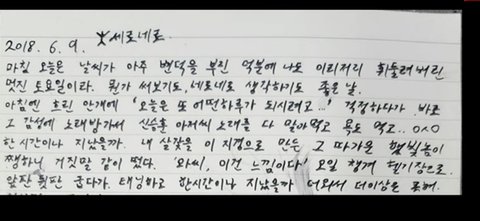 2018. 6. 9. 세로네로
마침 오늘은 날씨가 아주 변덕을 부린 덕분에 나도 이리저리 휘둘려버린
멋진 토요일이다. 뭔가 써보기도, 네로네로 생각하기도 좋은 날.
아침엔 흐린 안개에 '오늘은 또 어떤하루가 되시려고...' 걱정하다가 바로
그 감성에 노래방가서 신승훈 아저씨 노래를 다 말아먹고 욕도 먹고.. 0^0
한시간이나 지났을까. 내 살갗을 이 지경으로 만든 그 따가운 햇빛놈이
쨍하니 거짓말 같이 떴다. '와씨, 이건 느낌이다' 오일 챙겨 헬기장으로.
앞판 뒷판 굽다가. 태닝하고 한시간이나 지났을까 더워서 더이상은 못해.